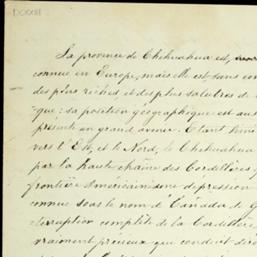 La province de Chihuahua est,
connue en Europe, mais elle est sans con
des plus riches et des plus salubres de
que : sa position géographique est aus
présente un grand avenir. Etant limi
vers l'Est, et le Nord, le Chihuahua
par la haute chaîne des Cordillères
frontière Américaine une depression
connue sous le nom de "Cañada de G
terruption complète de la Cordillère
vraiment precieux que conduit dire